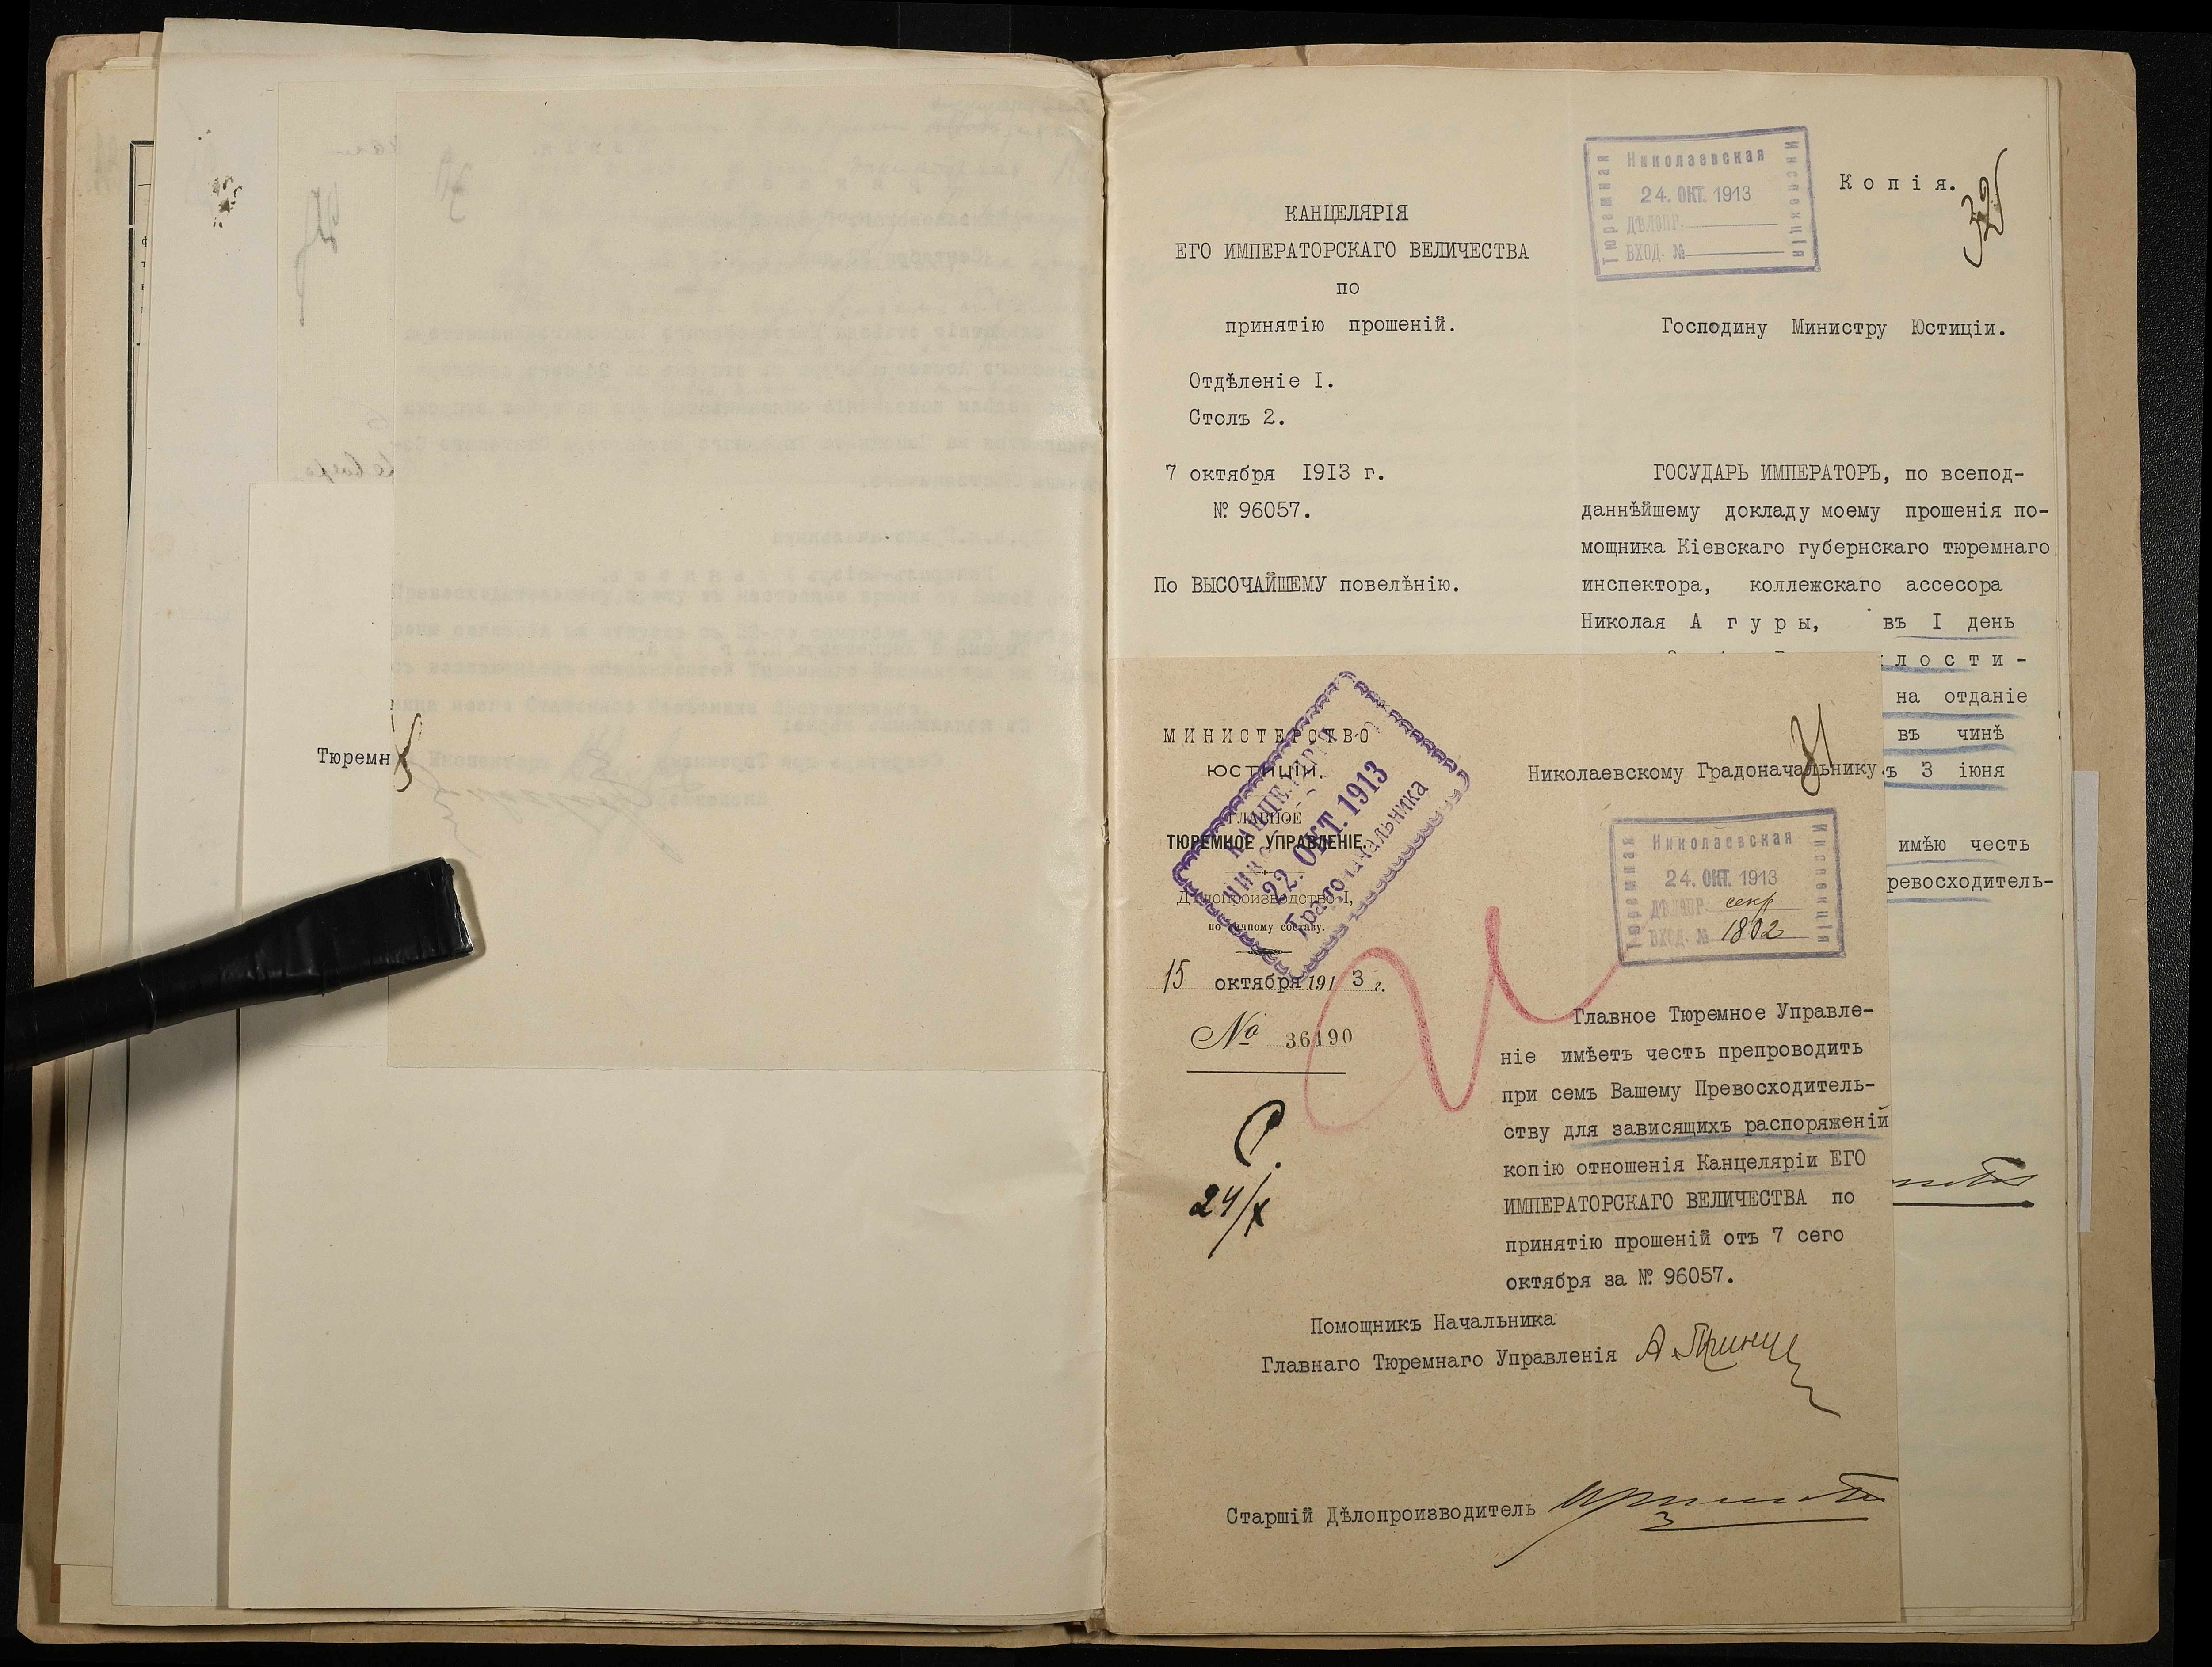 Тюремн
Копія.
32
Николаевская
Тюремная
Инспекція
24. ОКТ. 1913
ДѢЛОПР.
ВХОД. №
КАНЦЕЛЯРІЯ
ЕГО ИМПЕРАТОРСКАГО ВЕЛИЧЕСТВА
по
принятію прошеній.
Господину Министру Юстиціи.
Отдѣленіе I.
Столъ 2.
7 октября 1913 г.
№ 96057.
По ВЫСОЧАЙШЕМУ повелѣнію.
ГОСУДАРЬ ИМПЕРАТОРЪ, по всепод-
даннѣйшему докладу моему прошенія по-
мощника Кіевскаго губернскаго тюремнаго
инспектора, коллежскаго ассесора
Николая Агуры, въ I день
лости-
на отданіе
въ чинѣ
ъ 3 іюня
имѣю честь
ревосходитель-
МИНИСТЕРСТВО
ЮСТИЦІИ.
ГЛАВНОЕ
ТЮРЕМНОЕ УПРАВЛЕНІЕ.
Дѣлопроизводство I,
по личному составу.
15 октября 1913 г.
№ 36190
КАНЦЕЛЯРІЯ
НИКОЛ
22. ОКТ. 1913
Градоначальника
С.
24/X
31
Николаевскому Градоначальнику.
Николаевская
Тюремная
Инспекція
24. ОКТ. 1913
ДѢЛОПР. секр.
ВХОД. № 1802
Главное Тюремное Управле-
ніе имѣетъ честь препроводить
при семъ Вашему Превосходитель-
ству для зависящихъ распоряженій
копію отношенія Канцеляріи ЕГО
ИМПЕРАТОРСКАГО ВЕЛИЧЕСТВА по
принятію прошеній отъ 7 сего
октября за № 96057.
Помощникъ Начальника
Главнаго Тюремнаго Управленія
Старшій Дѣлопроизводитель